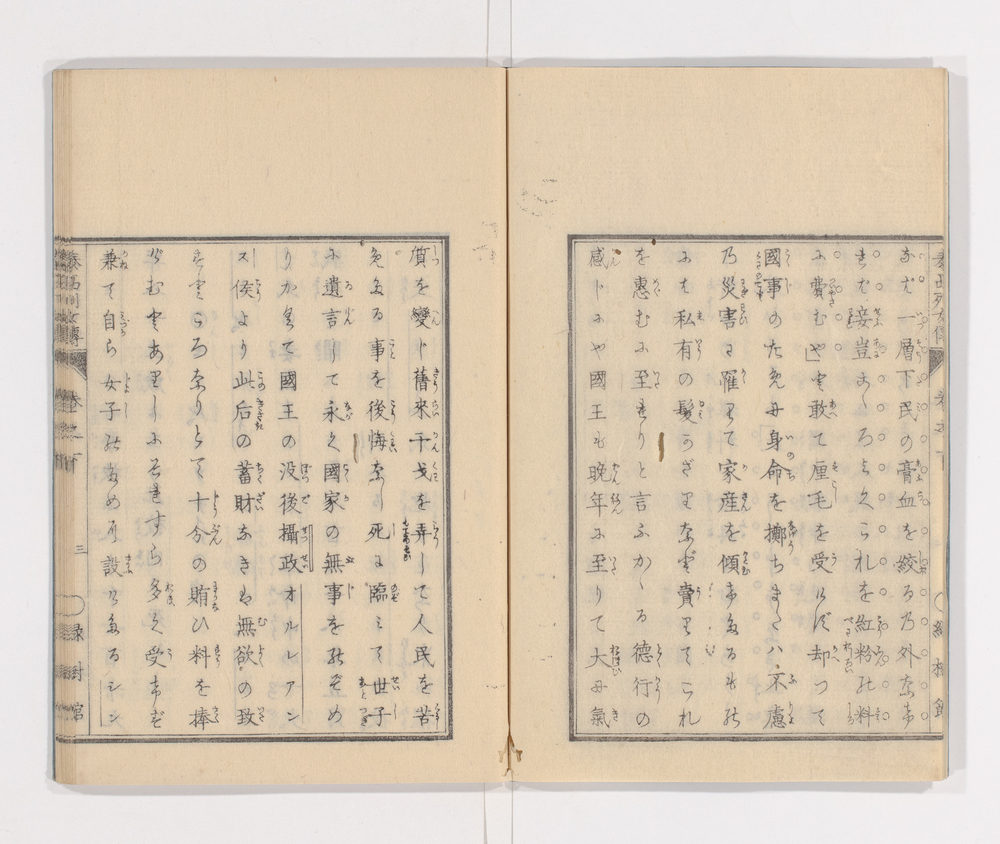 なバ一層下民の膏血を絞るの外なす
まじ妾豈あくろよくこれを紅粉の料
に費むやと敢て厘毛を受けず却つて
國事のため身命を擲ちまたハ不慮
の災害に罹りて家産を傾けたるもの
にも私有の髪かざりなど賣りてこれ
を惠むに至れりと言ふかゝる德行の
感じにや國王も晩年に至りて大に氣
質を變じ舊來干戈を弄して人民を苦
めたる事を後悔なし死に臨みて世子
に遺言して永く國家の無事をのぞめ
りかくて國王の没後攝政オルレアン
ス侯より此后の蓄財なきは無欲の致
すところなりとて十分の賄ひ料を捧
げむとありしにそれすら多く受けず
兼て自ら女子のため所設けたるシン
泰西列女傳
卷之下
三